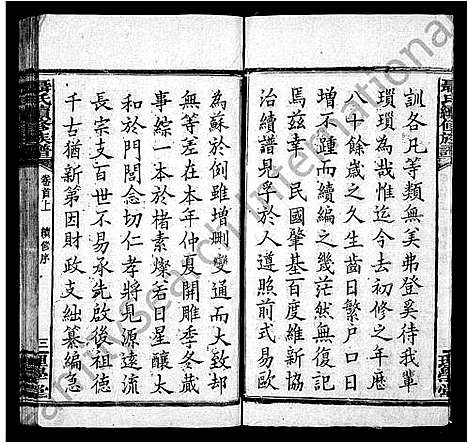 訓各凡等類無美弗登奚待我輩
瑣瑣為哉惟迄今去初修之年歷
八十餘歲之久生齒日繁戶口日
增不踵而續編之幾茫然無復記
焉茲幸民國肇基百度維新協
洽續譜見孚於人遵照前式易歐
為蘇於例雖增刪變通而大致却
無等差在本年仲夏開雕季冬蕆
事綜一本於楮素燦若日星釀太
和於門閭念切仁孝將見源遠流
長宗支百世不易承先啟後祖德
千古猶新第因財政支絀纂編急
聶氏續修族譜
卷首上
續修序
三
familysearch international